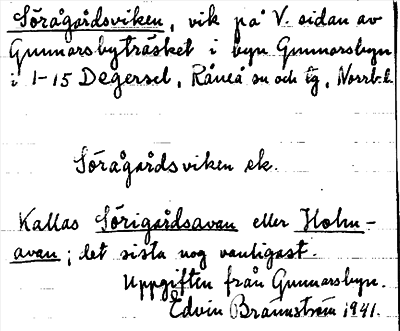 Sörågårdsviken, vik på V. sidan av
Gunnarsbyträsket i byn Gunnarsbyn
i 1-15 Degersel, Råneå sn och tg, Norrb.l.
Sörågårdsviken ek.
Kallas Sörigårdsavan eller Holm-
avan; det sista nog vanligast.
Uppgiften från Gunnarsbyn.
Edvin Brännström 1941.